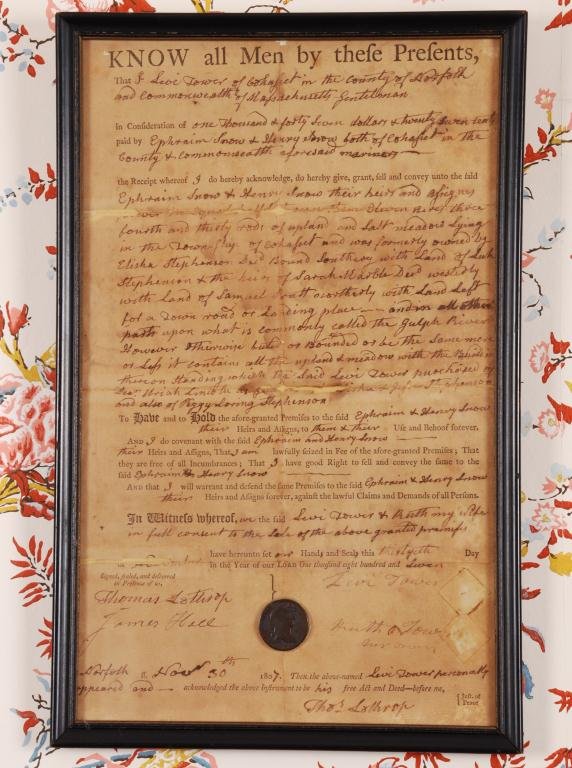 KNOW all Men by theſe Preſents,
That I Levi Tower of Cohaſset in the County of Norfolk
and Commonwealth of Massachusetts Gentleman
in Consideration of one Thousand & forty Seven dollars & twenty Seven
paid by Ephraim Snow & Henry Snow both of Cohaſset in the
County & Commonwealth aforesaid mariners
the Receipt whereof I do hereby acknowledge, do hereby give, grant, ſell and convey unto the ſaid
Ephraim Snow & Henry Snow their heirs and aſsignes
Eleven Acres three
fourth and thirty rods of upland and Salt meadow Lying
in the Township of Cohaſset and was formerly owned by
Elisha Stephenson Decd Bound Southerly with Land of Luke
Stephenson & the heirs of Sarah Marble Decd westerly
with Land of Samuel Pratt Northerly with Land Left
for a Town road or Landing place and in all other
parts upon what is commonly called the Gulph River
However otherwise butted or Bounded or be the Same more
or Leſs it contains all the upland & meadow with the Buildings
thereon Standing which the Said Levi Tower purchased of
Uriah Lincoln Stephenson
and also of Peggy Loring Stephenson
To Have and to Hold the afore-granted Premiſes to the ſaid Ephraim & Henry Snow
their Heirs and Aſſigns, to them & their Uſe and Behoof forever.
AND I do covenant with the ſaid Ephraim and Henry Snow
their Heirs and Aſſigns, That I am lawfully ſeized in Fee of the afore-granted Premiſes; That
they are free of all Incumbrances; That I have good Right to ſell and convey the ſame to the
ſaid Ephraim & Henry Snow
AND that I will warrant and defend the ſame Premiſes to the ſaid Ephraim & Henry Snow
their Heirs and Aſſigns forever, againſt the lawful Claims and Demands of all Perſons.
In Witneſs whereof, we the ſaid Levi Tower & Ruth my wife
in full consent to the Sale of the above granted premiſses
have hereunto ſet our Hands and Seals this thirtyeth Day
In the Year of our LORD One thouſand eight hundred and Seven
Signed, ſealed, and delivered
in Preſence of us,
Levi Tower
Thomas Lothrop
James Hall
Ruth Tower
Norfolk ſſ. Novr 30th 1807. Then the above-named Levi Tower personally
appeared and acknowledged the above Inſtrument to be his free Act and Deed—before me,
Juſt. of
Peace
Thos. Lothrop